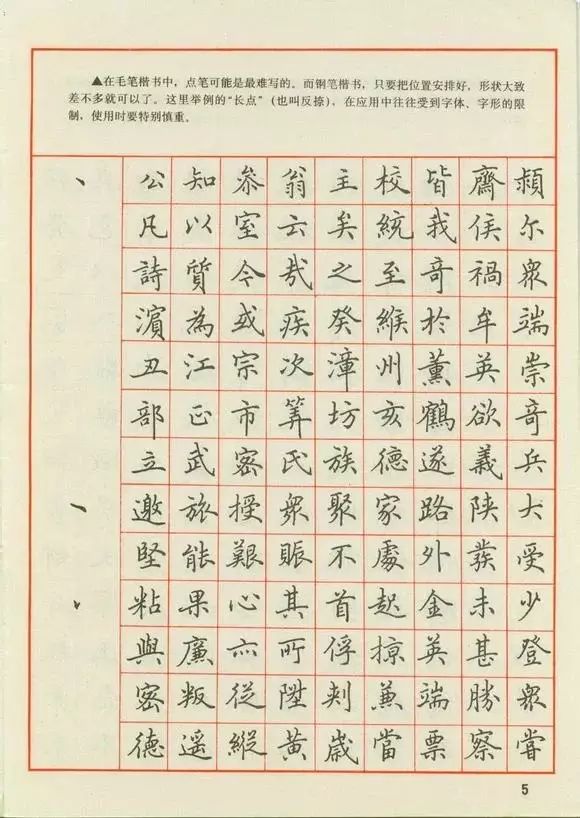 ▲在毛笔楷书中，点笔可能是最难写的。而钢笔楷书，只要把位置安排好，形状大致
差不多就可以了。这里举例的“长点”（也叫反捺），在应用中往往受到字体、字形的限
制，使用时要特别慎重。
丶 公 知 参 翁 主 校 皆 齋 頻
凡 以 室 云 矣 統 我 侯 尔
詩 質 今 哉 之 至 奇 禍 衆
濵 為 或 疾 癸 緱 於 牟 端
丑 江 宗 次 漳 州 薰 英 崇
部 正 市 筭 坊 亥 鶴 欲 奇
立 武 密 氏 族 德 遂 義 兵
邀 旅 授 衆 聚 家 路 陕 大
堅 能 艱 賑 不 處 外 發 受
粘 果 心 其 首 起 金 未 少
與 廉 亦 所 俘 掠 英 甚 登
密 叛 従 陞 刺 兼 端 勝 衆
德 遥 縱 黄 歲 當 票 察 嘗
5